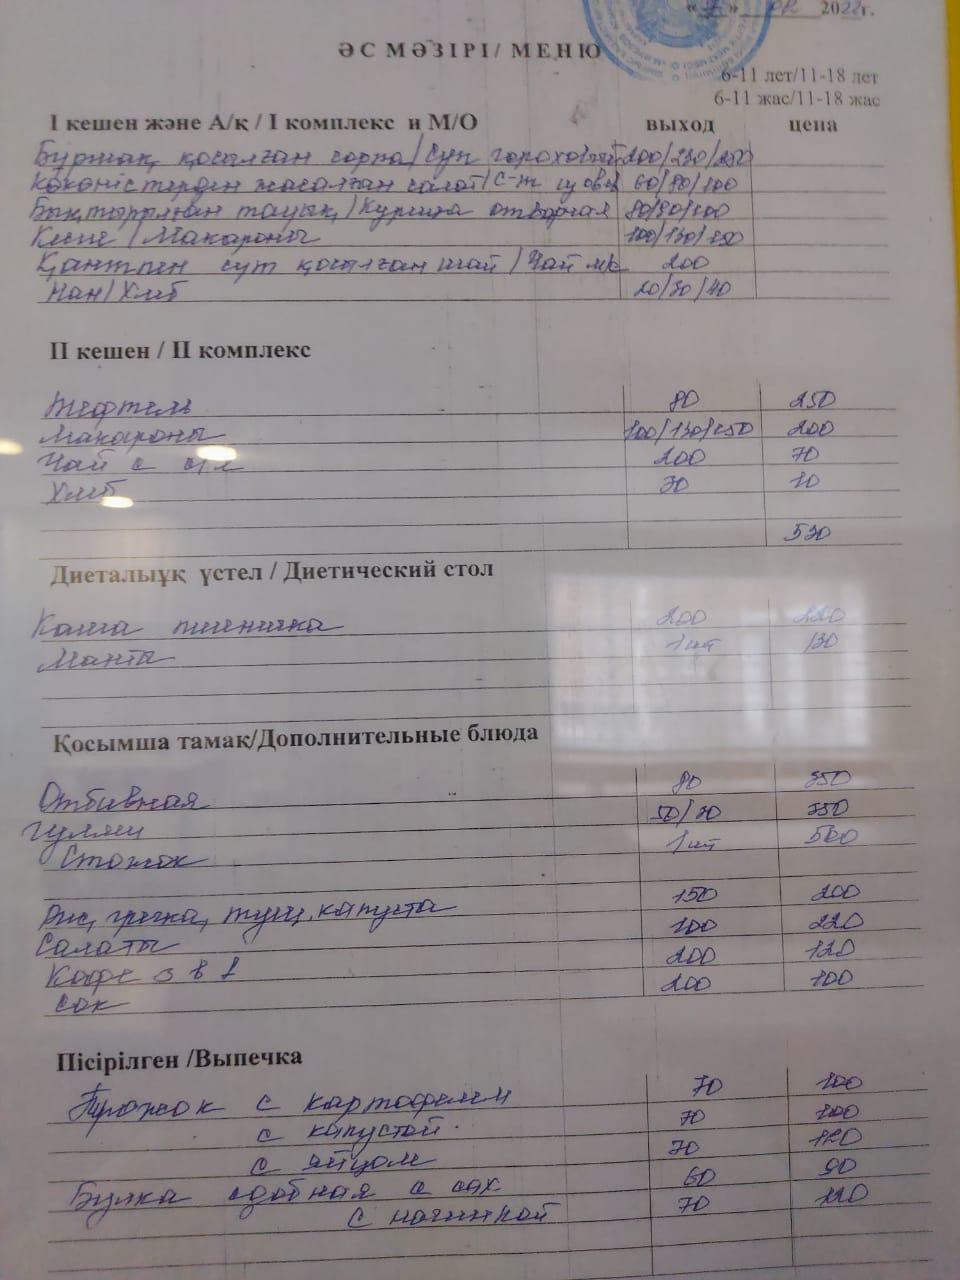 2022г.
ӘС МӘЗІРІ/ МЕНЮ
6-11 лет/11-18 лет
6-11 жас/11-18 жас
І кешен және А/қ / І комплекс и М/О выход цена
Бұршақ қосылған сорпа/Суп гороховый 200/230/250
Көкөністерден жасалған салат/С-т 60/80/100
Бықтырылған тауық/Курица отварная 80/90/100
Кеспе/Макароны 100/130/150
Қантпен сүт қосылған шай/Чай 200
Нан/Хлеб 20/30/40
ІІ кешен / ІІ комплекс
Тефтель 80 250
Макароны 100/130/150 200
Чай с 200 70
Хлеб 30 10
530
Диеталыұқ үстел / Диетический стол
Каша пшеничка 200 220
Манты 1 шт 130
Қосымша тамақ/Дополнительные блюда
Отбивная 80 350
Гуляш 50/30 350
Стожок 1 шт 500
Рис, гречка, туш, капуста 150 200
Салаты 100 220
Кофе 3 в 1 200 120
Сок 200 100
Пісірілген /Выпечка
Пирожок с картофелем 70 100
с капустой 70 100
с яйцом 70 120
Булка сдобная с сах 60 90
с начинкой 70 110